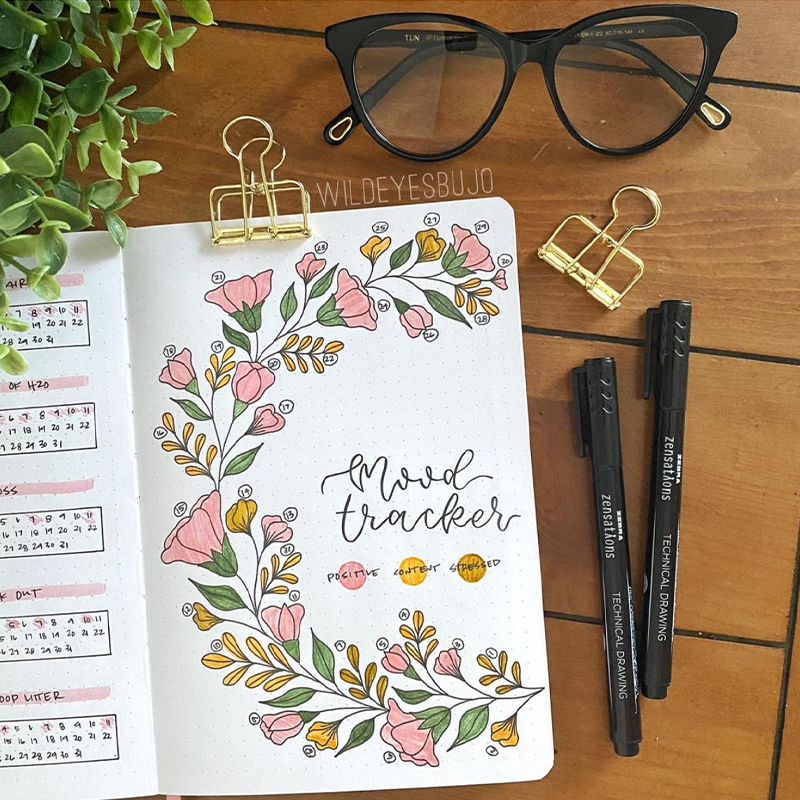 TIJN
WILDEYESBUJO
AIR
7 8 9 10 11
19 20 21 22
28 29 30 31
OF H2O
6 7 8 9 10 11
18 19 20 21 22
28 29 30 31
OSS
5 6 7 8 9 10 11
16 17 18 19 20 21 22
27 28 29 30 31
K OUT
5 6 7 8 9 10 11
16 17 18 19 20 21 22
27 28 29 30 31
OOP LITTER
4 5 6 7 8 9 10 11
15 16 17 18 19 20 21 22
26 27 28 29 30 31
25 27 29
23
21 30
24 28
26
18 19 22
20
17
16
15 14 13
Mood
tracker
POSITIVE CONTENT STRESSED
12 11
10 7 5 4 2 1
8 3
ZEBRA
zensations
TECHNICAL DRAWING
ZEBRA
zensations
TECHNICAL DRAWING